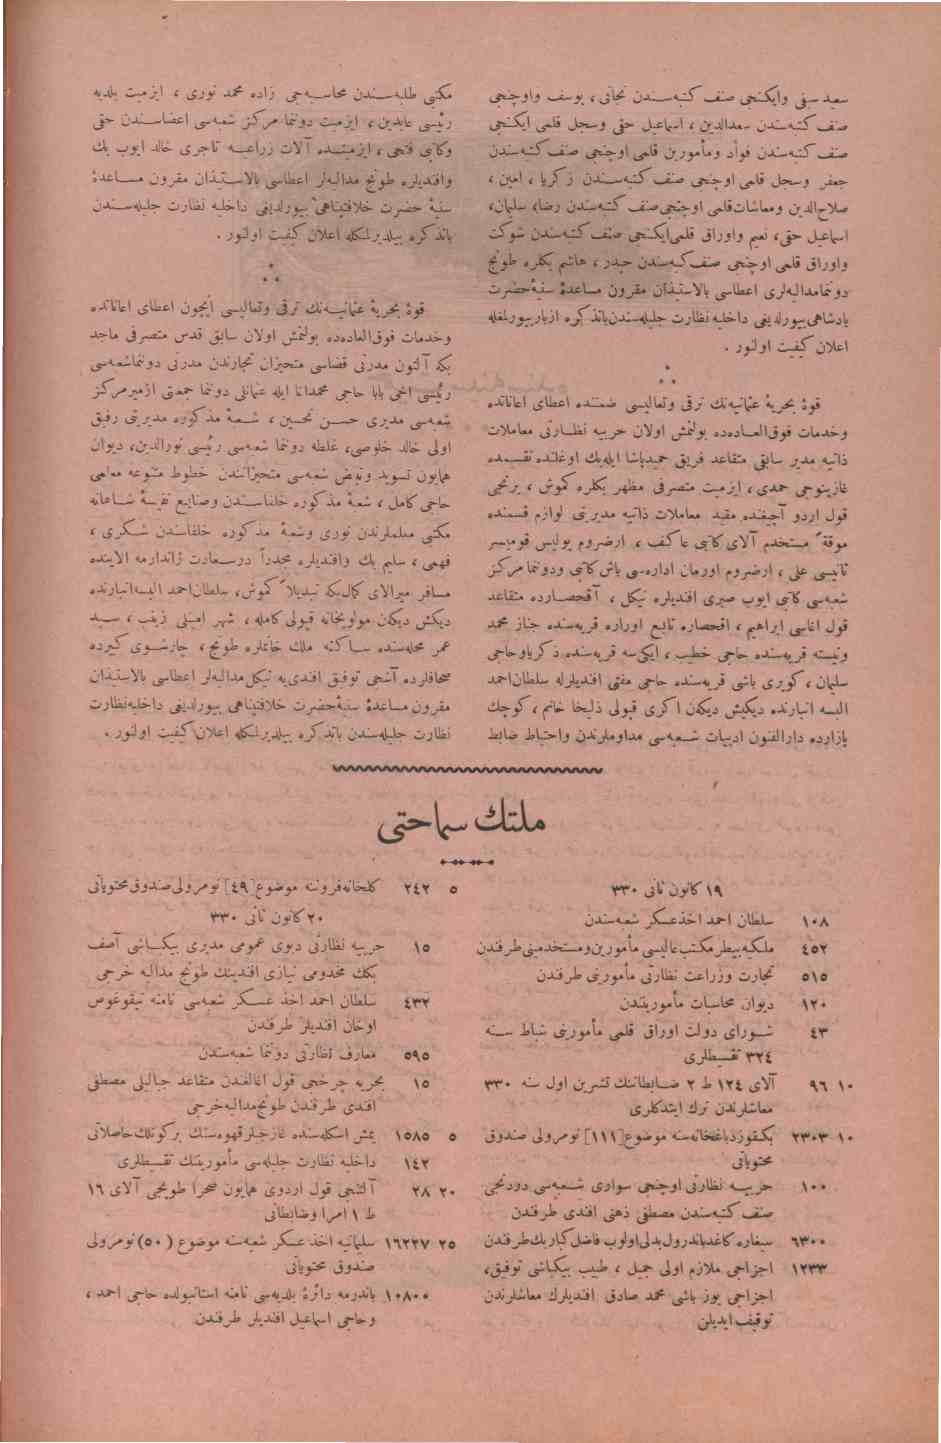 سعید سیفی وایكنجی صنف كتبه‌سندن نجاتی ، یوسف واوچنجی
صنف كتبه‌سندن سعدالدین ، اسماعیل حقی وسجل قلمی ایكنجی
صنف كتبه‌سندن فوأد ومأمورین قلمی اوچنجی صنف كتبه‌سندن
جعفر وسجل قلمی اوچنجی صنف كتبه‌سندن زكریا ، امین ،
صلاح‌الدین ومعاشات قلمی اوچنجی صنف كتبه‌سندن رضا، سلیمان،
اسماعیل حقی، نعیم واوراق قلمی ایكنجی صنف كتبه‌سندن شوكت
واوراق قلمی اوچنجی صنف كتبه‌سندن حیدر ، هاشم بكلره طونج
دونما مدالیه‌لری اعطاسی بالاستیذان مقرون مساعدهٔ سنیهٔ حضرت
پادشاهی بیورلدیغی داخلیه نظارت جلیله‌سندن باتذكره ازبار بیورلمغله
اعلان كیفیت اولنور .
قوهٔ بحریهٔ عثمانیه‌نك ترقی وتعالیسی ضمننده اعطای اعاناتده
وخدمات فوق‌العاده‌ده بولنمش اولان حربیه نظارتی معاملات
ذاتیه مدیر سابقی متقاعد فریق حمید پاشا ایله بك اوغلنده تقسیمده
غازینوجی حمدی ، ازمیت متصرفی مظهر بكلره كموش ، برنجی
قول اردو آچیغنده مقید معاملات ذاتیه مدیریتی لوازم قسمنده
موقةً مستخدم آلای كاتبی عاكف ، ارضروم پولیس قومیسر
ثانیسی علی ، ارضروم اورمان اداره‌سی باش كاتبی ودونما مركز
شعبه‌سی كاتبی ایوب صبری افندیلره نیكل ، آقحصارده متقاعد
قول اغاسی ابراهیم ، اقحصاره تابع اوراره قریه‌سنده جناز محمد
ونیسته قریه‌سنده حاجی خطیب ، ایكی‌سه قریه‌سنده ذكریا وحاجی
سلیمان ، كوپری باشی قریه‌سنده حاجی مفتی افندیلرله سلطان احمد
البسه انبارنده دیكیش دیكن اكری قپولی ذلیخا خانم ، كوچك
پازارده دارالفنون ادبیات شعبه‌سی مداوملرندن واحتیاط ضابط
مكتبی طلبه‌سندن محاسبه‌جی زاده محمد نوری ، ازمیت بلدیه
رئیسی عابدین ، ازمیت دونما مركز شعبه‌سی اعضاسندن حقی
وكاتبی فتحی ، ازمیتده آلات زراعیه تاجری خالد ایوب بك
وافندیلره طونج مدالیه‌لر اعطاسی بالاستیذان مقرون مساعدهٔ
سنیهٔ حضرت خلافتپناهی بیورلدیغی داخلیه نظارت جلیله‌سندن
باتذكره بیلدیرلمكله اعلان كیفیت اولنور .
قوهٔ بحریهٔ عثمانیه‌نك ترقی وتعالیسی ایچون اعطای اعاناتده
وخدمات فوق‌العاده‌ده بولنمش اولان سابق قدس متصرفی ماجد
بكه آلتون مدرنی قضاسی متحیزان تجارندن مدرنی دونما شعبه‌سی
رئیسی اخی بابا حاجی محمد اغا ایله عثمانلی دونما جمعیتی ازمیر مركز
شعبه‌سی مدیری حسن تحسین ، شعبهٔ مذكوره مدیریتی رفیق
اولی خالد خلوصی، غلطه دونما شعبه‌سی رئیسی نورالدین، دیوان
همایون تسوید وتبییض شعبه‌سی متحیزانندن خطوط متنوعه معلمی
حاجی كامل ، شعبهٔ مذكوره خلفاسندن وصنایع نفیسهٔ شاهانه
مكتبی معلملرندن نوری وشعبهٔ مذكوره خلفاسندن شكری ،
فهمی ، سلیم بك وافندیلره مجدداً درسعادت ژاندارمه آلاینده
مسافر میرالای كمال بكه تبدیلاً كموش، سلطان احمد البسه انبارنده
دیكش دیكن مولویخانه قپولی كامله ، شهر امینلی زینب ، سید
عمر محله‌سنده ساكنه ملك خانملره طونج ، چارشوی كبیرده
صحافلرده آشجی توفیق افندی‌یه نیكل مدالیه‌لر اعطاسی بالاستیذان
مقرون مساعدهٔ سنیهٔ حضرت خلافتپناهی بیورلدیغی داخلیه نظارت
نظارت جلیله‌سندن باتذكره بیلدیرلمكله اعلان كیفیت اولنور .
ملتك سماحتی
١٩ كانون ثانی ٣٣٠
١٠٨ سلطان احمد اخذ عسكر شعبه‌سندن
٤٥٢ ملكیه بیطر مكتب عالیسی مأمورین ومستخدمینی طرفندن
٥١٥ تجارت وزراعت نظارتی مأمورینی طرفندن
١٢٠ دیوان محاسبات مأمورینندن
٤٣ شورای دولت اوراق قلمی مأمورینی شباط سنه
٣٢٤ تقسیطلری
١٠ ٩٦ آلای ١٢٤ ط ٢ ضابطاننك تشرین اول سنه ٣٣٠
معاشلرندن ترك ایتدكلری
١٠ ٢٣٠٣ بكقوز دباغخانه‌سنه موضوع [١١١] نومرولی صندوق
محتویاتی
١٠٠ حربیه نظارتی اوچنجی سواری شعبه‌سی دردنجی
صنف كتبه‌سندن مصطفی ذهنی افندی طرفندن
٦٣٠٠ سیغاره كاغد باندرول بدلی اولوب فاضل كبار بك طرفندن
١٢٣٣ اجزاجی ملازم اولی جمیل ، طبیب بیكباشی توفیق،
اجزاجی یوز باشی محمد صادق افندیلرك معاشلرندن
توقیف ایدیلن
٥ ٢٤٢ كلخانه فروننه موضوع [٤٩] نومرولی صندوق محتویاتی
٢٠ كانون ثانی ٣٣٠
١٥ حربیه نظارتی دپوی عمومی مدیری بیكباشی آصف
بكك مخدومی نیازی افندینك طونج مدالیه خرجی
٤٣٢ سلطان احمد اخذ عسكر شعبه‌سی نامنه نیقوغوس
اوخان افندیلر طرفندن
٥٩٥ معارف نظارتی دونما شعبه‌سندن
١٥ بحریه چرخجی قول اغالغندن متقاعد جبالیلی مصطفی
افندی طرفندن طونج مدالیه خرجی
٥ ١٥٨٥ یمش اسكله‌سنده غازجیلر قهوه‌سنك بر كونلك حاصلاتی
١٤٢ داخلیه نظارت جلیله‌سی مأمورینك تقسیطلری
٢٠ ٢٨ آلتنجی قول اردوی همایون صحرا طوپجی آلای ١٦
ط ١ امرا وضابطانی
٢٥ ١٦٢٢٧ سلیمانیه اخذ عسكر شعبه‌سنه موضوع (٥٠) نومرولی
صندوق محتویاتی
١٠٨٠٠ باندرمه دائرهٔ بلدیه‌سی نامنه استانبولده حاجی احمد ،
وحاجی اسماعیل افندیلر طرفندن